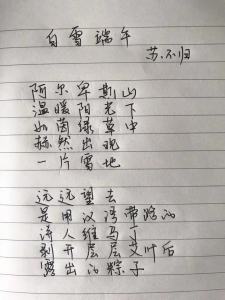 白雪端午
苏不归
阿尔卑斯山
温暖阳光下
如茵绿草中
赫然出现
一片雪地
远远望去
是用汉语带路的
诗人维马丁
剥开层层艾叶后
露出的粽子